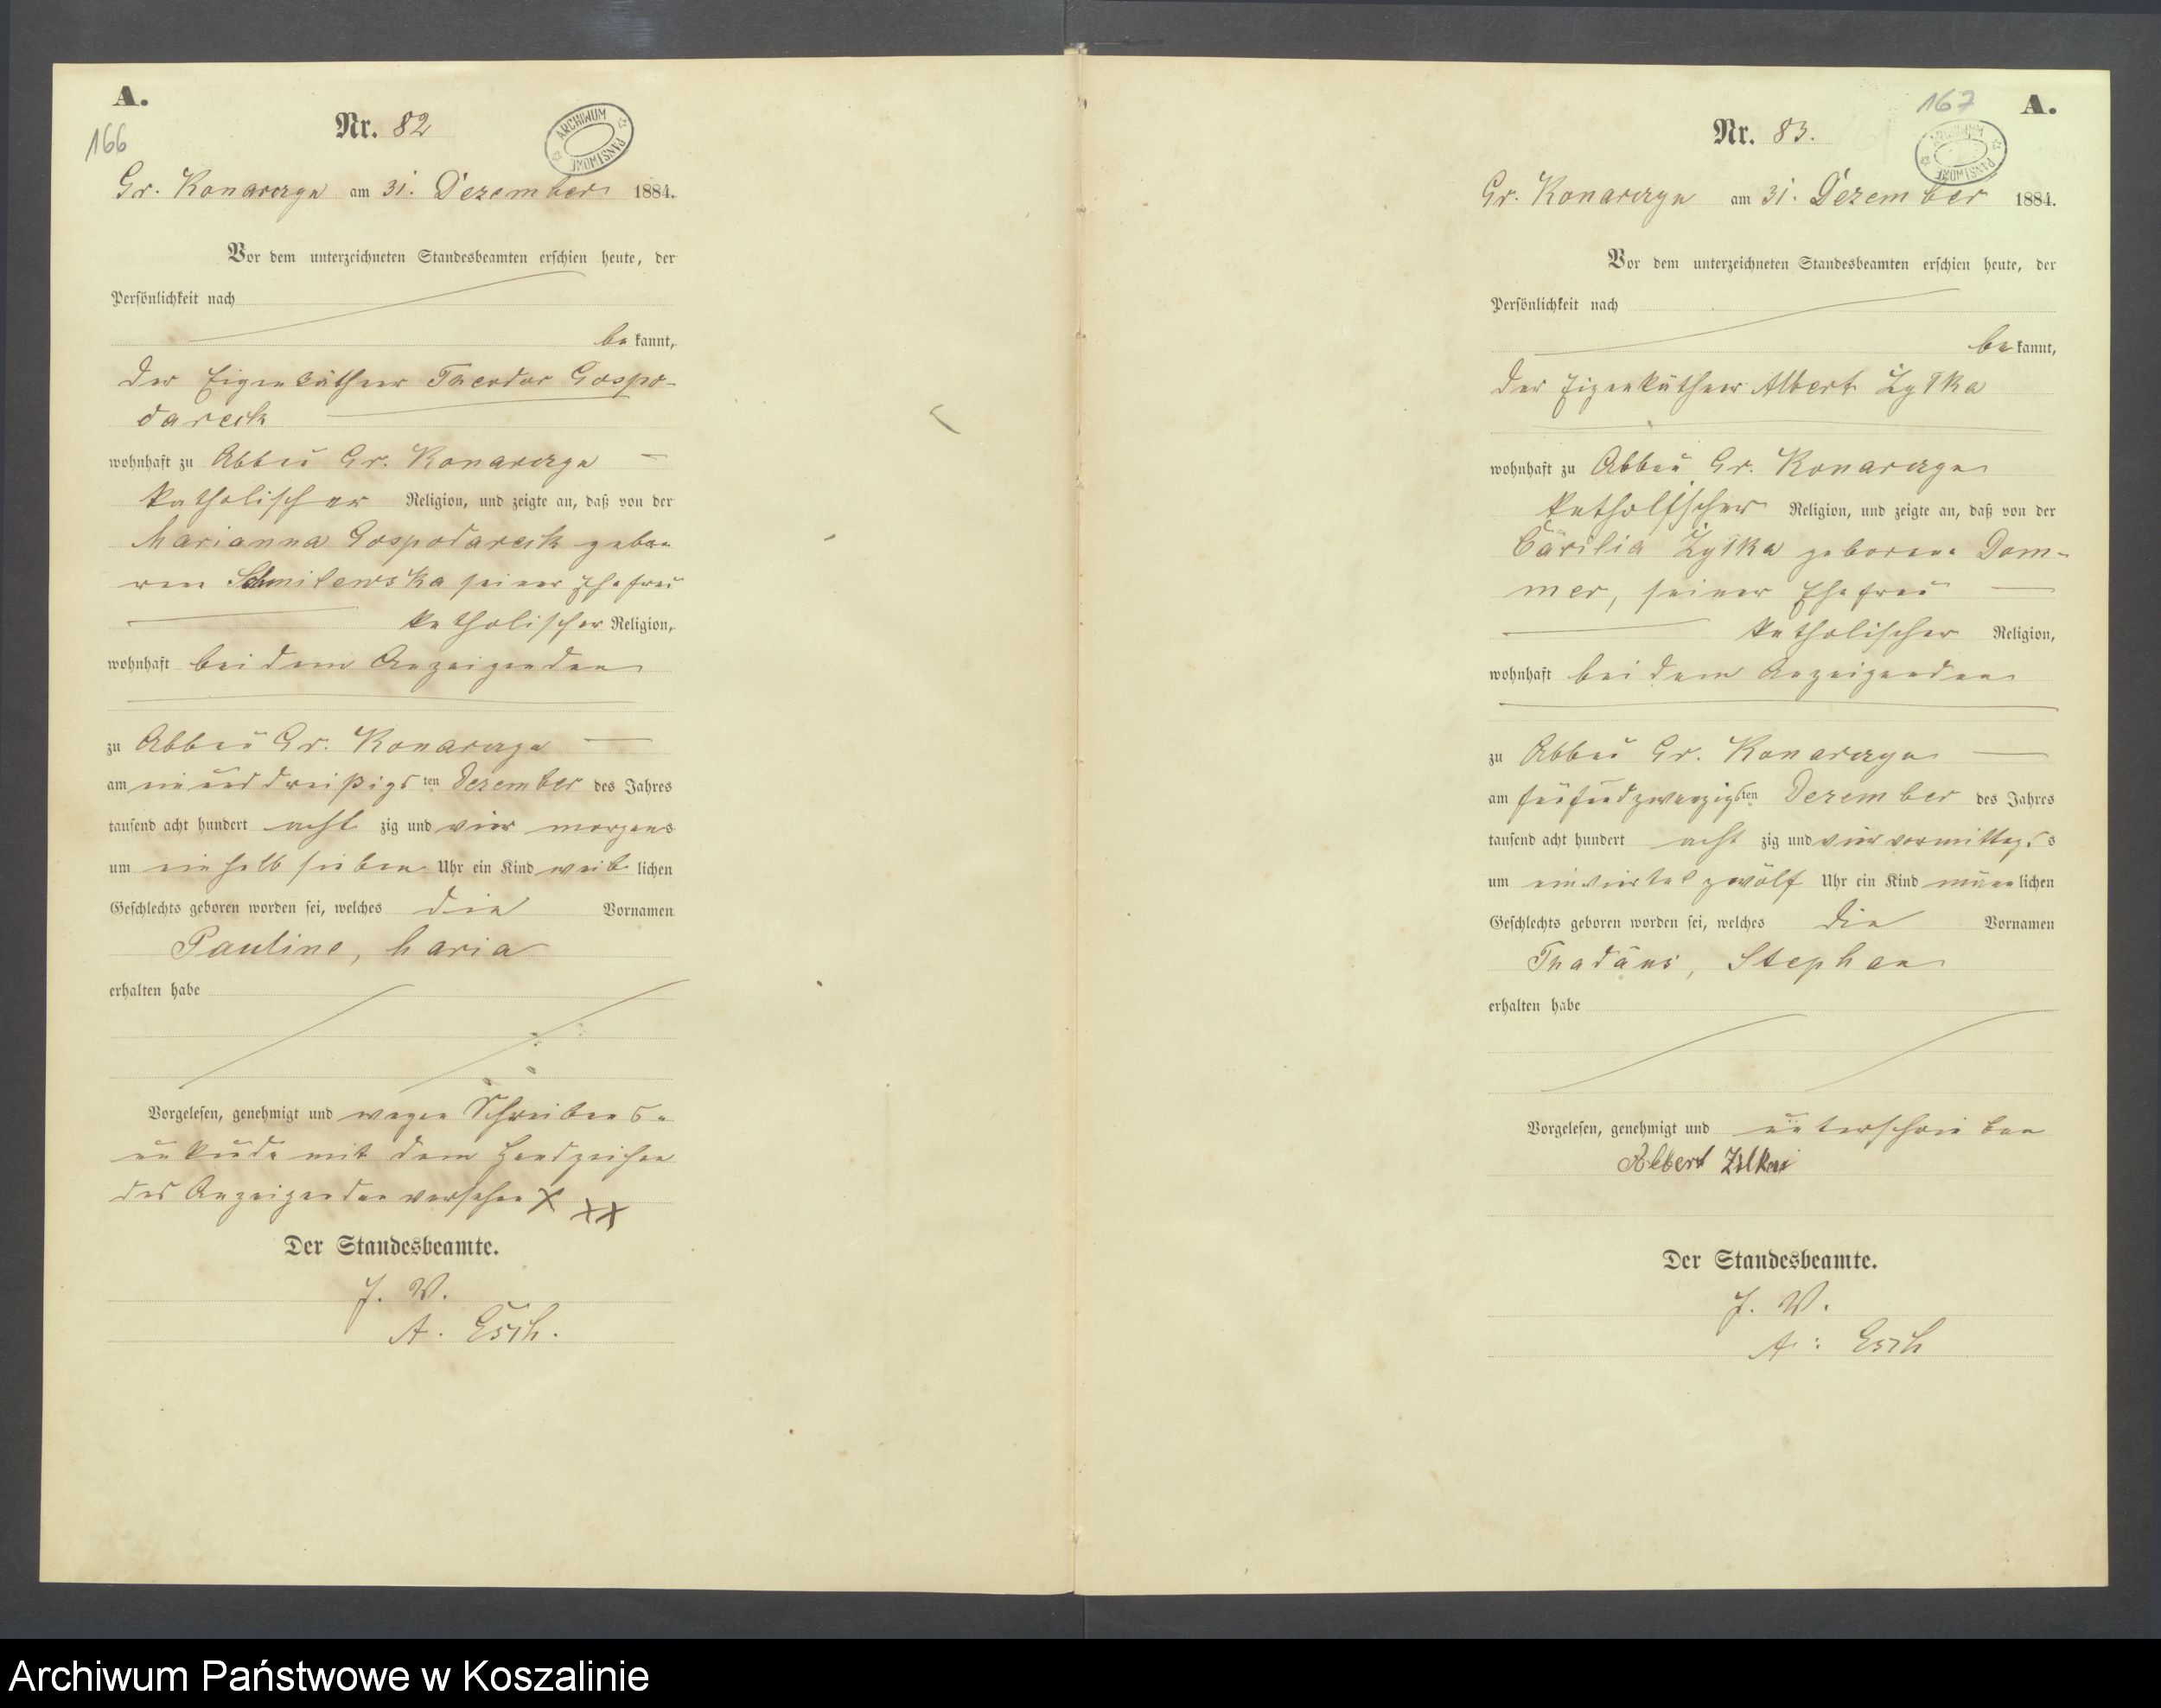 A.
166
Nr. 82
ARCHIWUM PAŃSTWOWE
Gr. Konarczyn am 31. Dezember 1884.
Vor dem unterzeichneten Standesbeamten erschien heute, der
Persönlichkeit nach
be kannt,
der Eigenkäthner Theodor Gospo-
dareck
wohnhaft zu Abbau Gr. Konarczyn
katholischer Religion, und zeigte an, daß von der
Marianna Gospodareck gebor-
nen Schmilewska seiner Ehefrau
katholischer Religion,
wohnhaft bei dem Anzeigenden
zu Abbau Gr. Konarczyn
am einunddreißigsten Dezember des Jahres
tausend acht hundert acht zig und vier morgens
um einhalb sieben Uhr ein Kind weib lichen
Geschlechts geboren worden sei, welches die Vornamen
Pauline, Maria
erhalten habe
Vorgelesen, genehmigt und wegen Schreibens-
unkunde mit dem Handzeichen
des Anzeigenden versehen X XX
Der Standesbeamte.
J. V.
A. Esch.
167
A.
Nr. 83.
ARCHIWUM PAŃSTWOWE
Gr. Konarczyn am 31. Dezember 1884.
Vor dem unterzeichneten Standesbeamten erschien heute, der
Persönlichkeit nach
be kannt,
der Eigenkäthner Albert
wohnhaft zu Abbau Gr. Konarczyn
katholischer Religion, und zeigte an, daß von der
Cäcilia geborene Dom-
mer, seiner Ehefrau
katholischer Religion,
wohnhaft bei dem Anzeigenden
zu Abbau Gr. Konarczyn
am fünfundzwanzigsten Dezember des Jahres
tausend acht hundert acht zig und vier vormittags
um einviertel zwölf Uhr ein Kind männ lichen
Geschlechts geboren worden sei, welches die Vornamen
Thadäus, Stephan
erhalten habe
Vorgelesen, genehmigt und unterschrieben
Albert
Der Standesbeamte.
J. V.
A. Esch
Archiwum Państwowe w Koszalinie